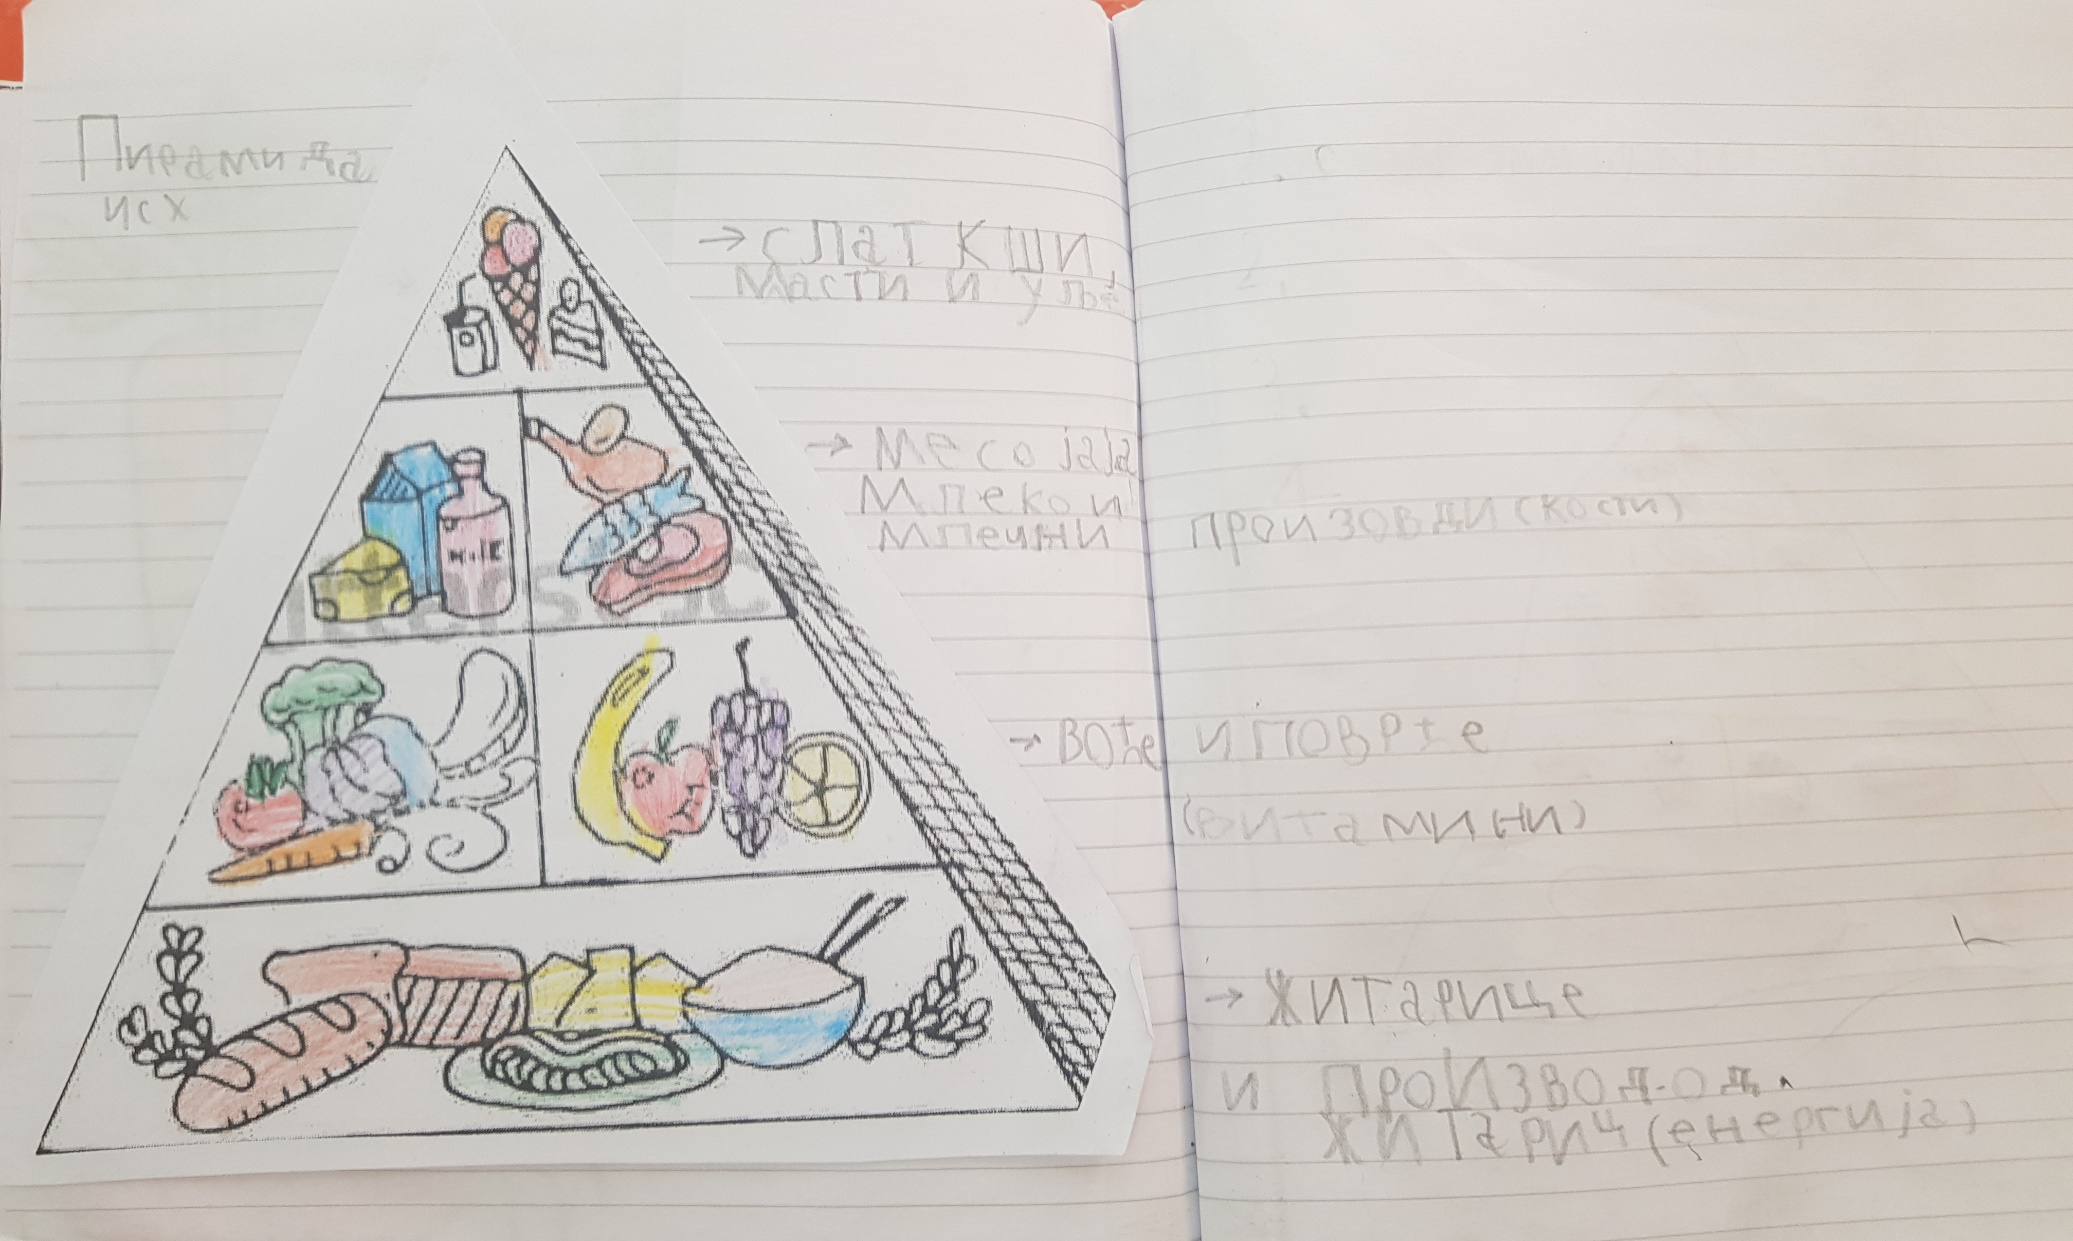 Пирамида
исх
→ слаткши,
масти и уље
→ месо јаја
Млеко и
млечни произовди (кости)
MilE
→ воће и поврће
(витамини)
→ житарице
и производ. од.
житариц (енергија)